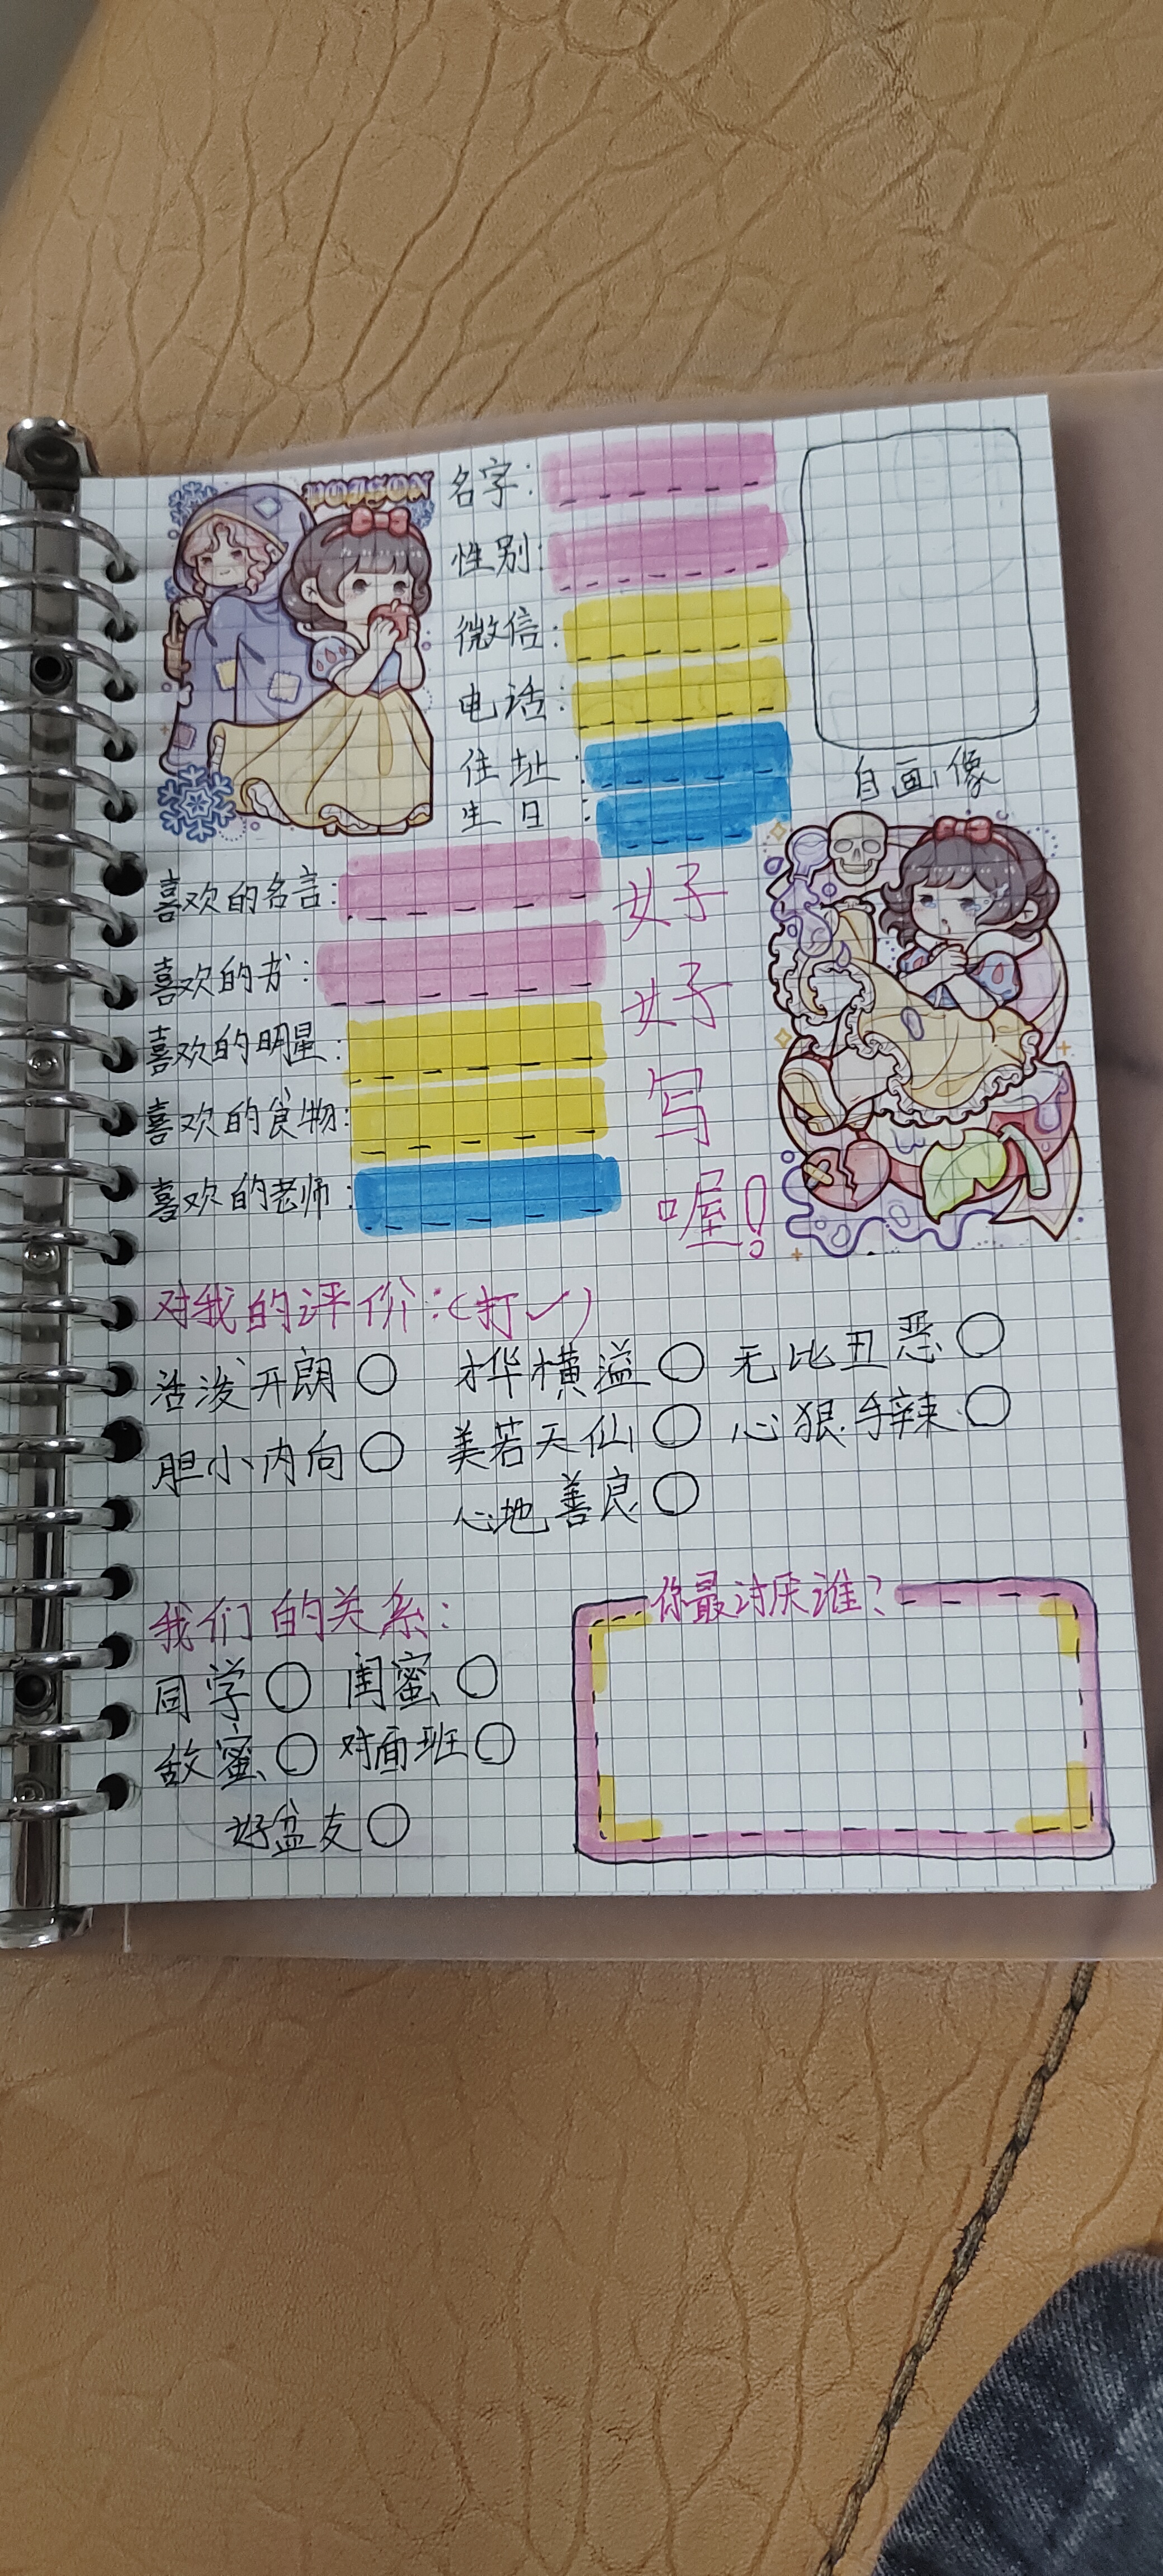 POISON
名字:
性别:
微信:
电话:
住址:
生日:
自画像
喜欢的名言:
喜欢的书:
喜欢的明星:
喜欢的食物:
喜欢的老师:
好
好
写
喔!
对我的评价:(打✓)
活泼开朗○ 才华横溢○ 无比丑恶○
胆小内向○ 美若天仙○ 心狠手辣○
心地善良○
我们的关系:
同学○ 闺蜜○
敌蜜○ 对面班○
好盆友○
你最讨厌谁?